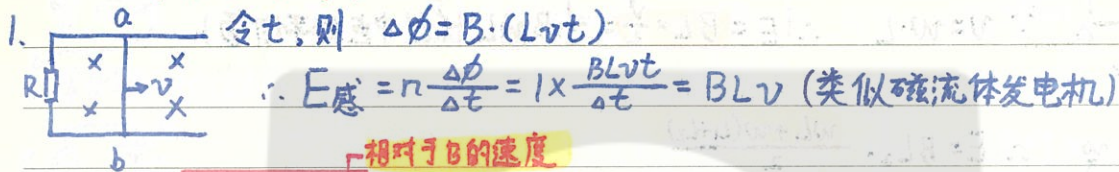 1. a 令t,则 Δϕ=B·(Lvt)
R × × v × ×
∴ E感 = n Δϕ/Δt = 1× BLvt/Δt = BLv (类似磁流体发电机)
b 相对于B的速度